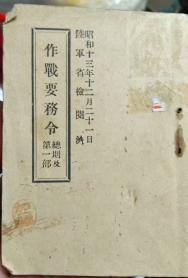 昭和十三年十二月二十一日
陸軍省檢閲濟
作戰要務令
總則及
第一部